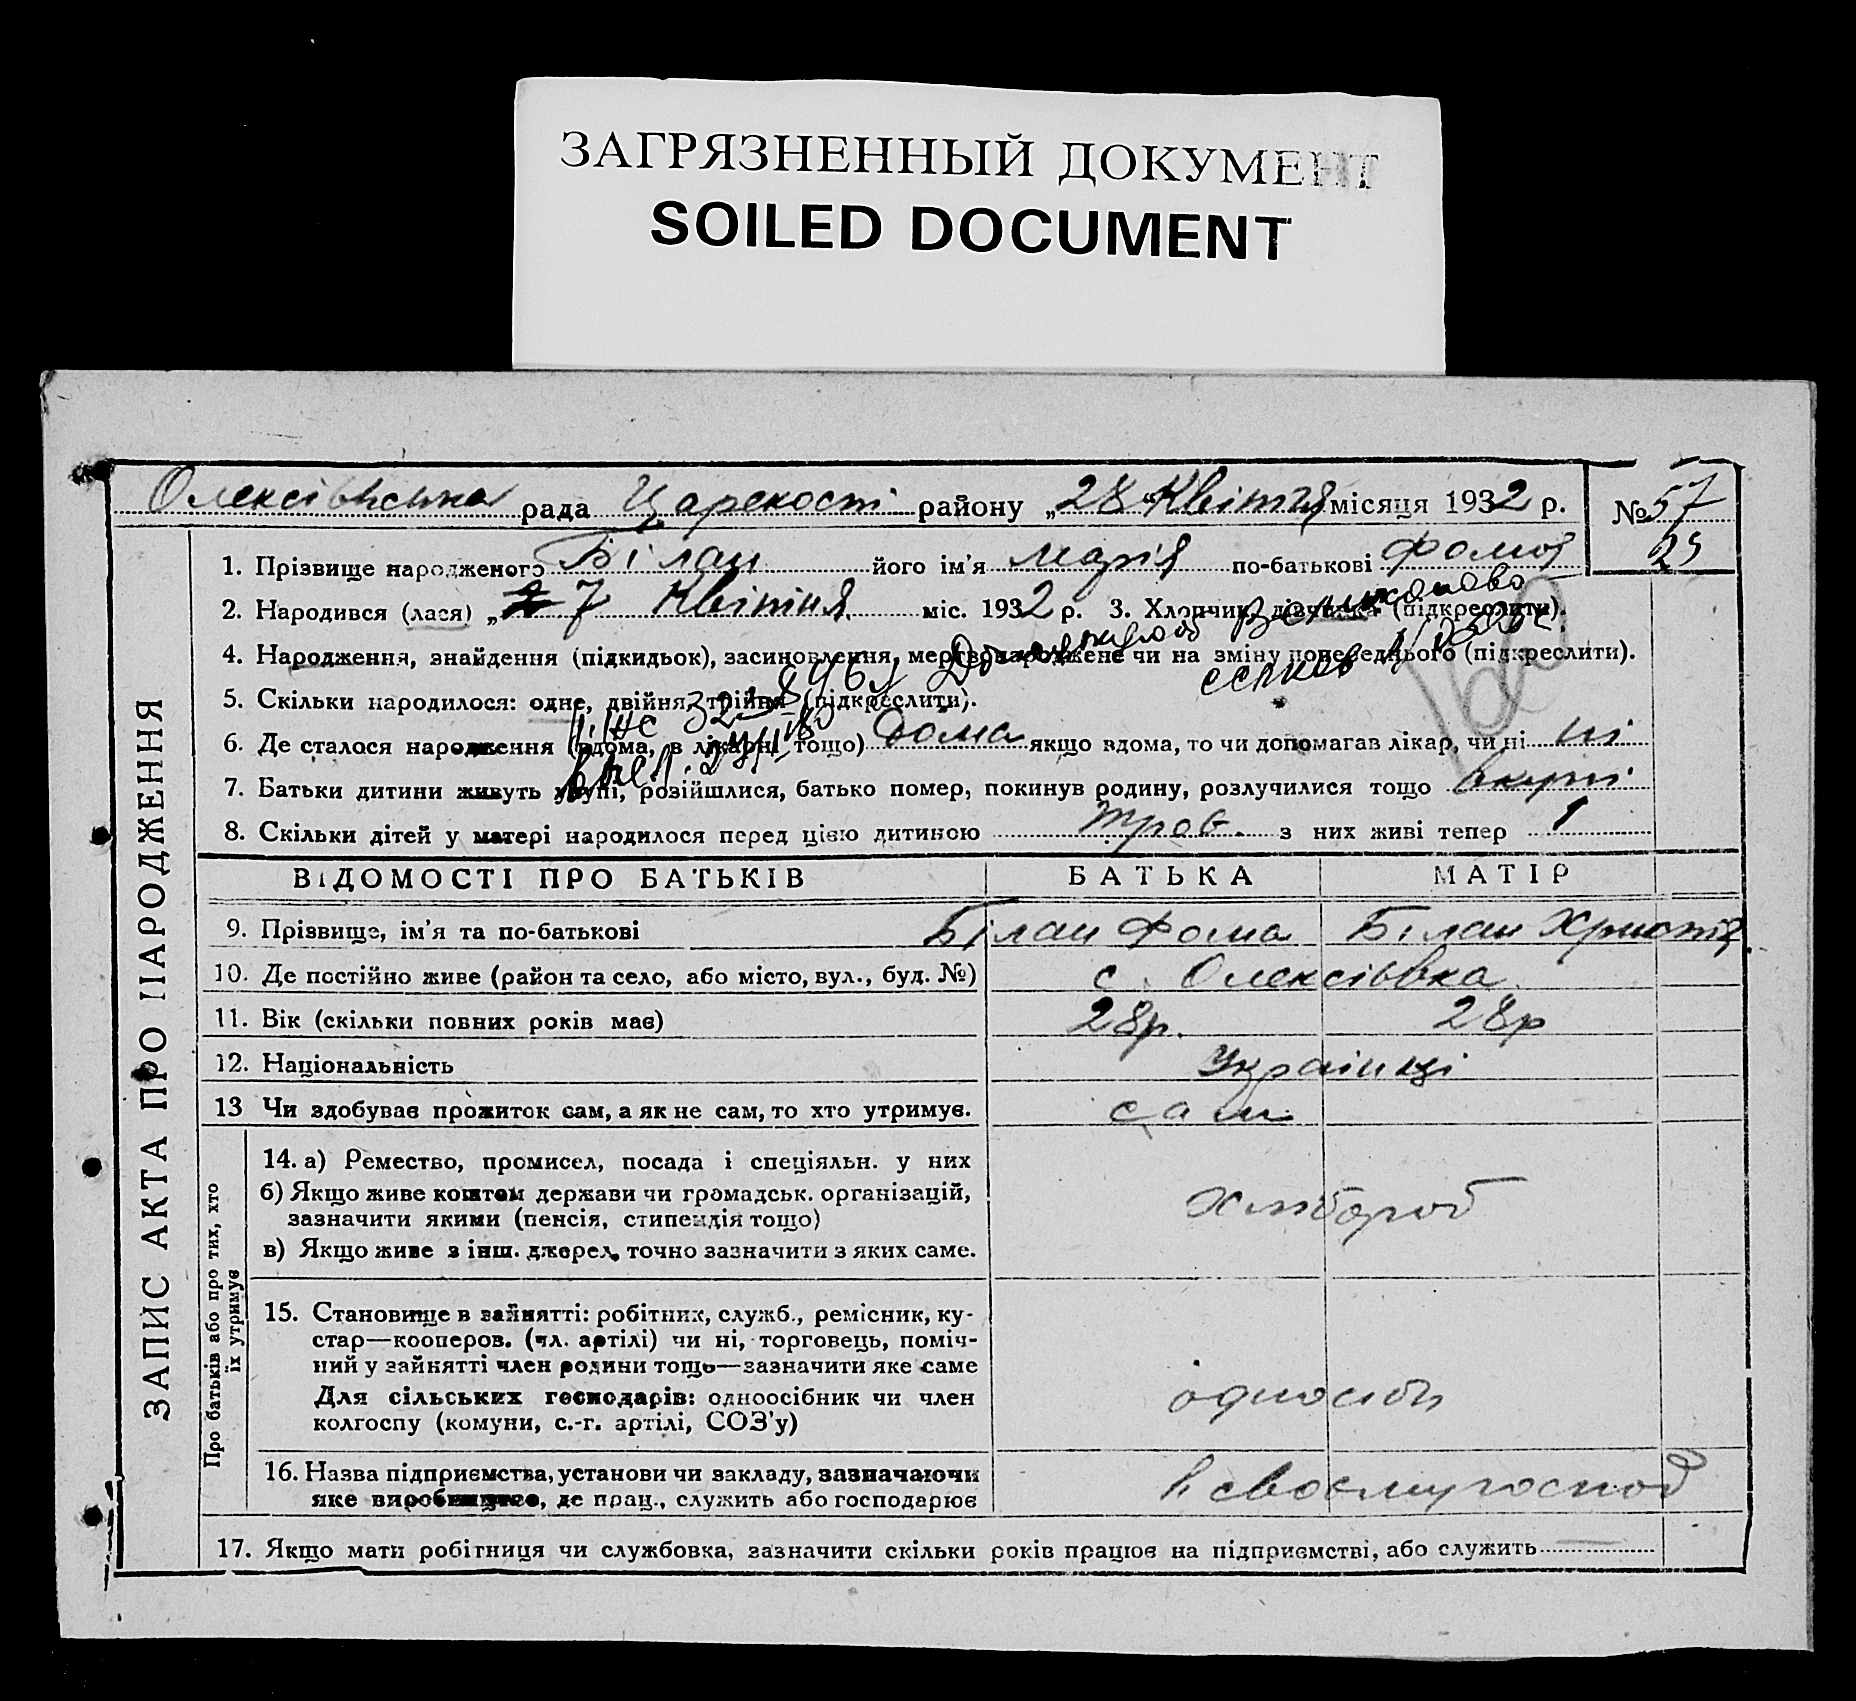 ЗАГРЯЗНЕННЫЙ ДОКУМЕНТ
SOILED DOCUMENT
Олексівська рада Царекост районy „28“ Квітня місяця 1932 р. № 57
25
1. Прізвище народженого Білан його ім'я Марія по-батькові Фомов
2. Народився (лася) „7 Квітня міс. 1932 р. 3. Хлопчик, дівчинка (підкреслити).
4. Народження, знайдення (підкидьок), засиновлення, мертвонароджене чи на зміну попереднього (підкреслити).
5. Скільки народилося: одне, двійня, трійня (підкреслити).
6. Де сталося народження (вдома, в лікарні тощо) дома якщо вдома, то чи допомагав лікар, чи ні ні
7. Батьки дитини живуть укупі, розійшлися, батько помер, покинув родину, розлучилися тощо вкупі
8. Скільки дітей у матері народилося перед цією дитиною троє з них живі тепер 1
ЗАПИС АКТА ПРО НАРОДЖЕННЯ
ВІДОМОСТІ ПРО БАТЬКІВ БАТЬКА МАТІР
9. Прізвище, ім'я та по-батькові Білан Фома Білан Христя
10. Де постійно живе (район та село, або місто, вул., буд. №) с. Олексіівка
11. Вік (скільки повних років має) 28р. 28р
12. Національність Українці
13 Чи здобуває прожиток сам, а як не сам, то хто утримує. сам
Про батьків або про тих, хто
їх утримує
14. а) Ремество, промисел, посада і спеціяльн. у них
б) Якщо живе коштом держави чи громадськ. організацій,
зазначити якими (пенсія, стипендія тощо) хлібороб
в) Якщо живе з інш. джерел, точно зазначити з яких саме.
15. Становище в зайнятті: робітник, служб., ремісник, ку-
стар—кооперов. (чл. артілі) чи ні, торговець, поміч-
ний у зайнятті член родини тощо—зазначити яке саме
Для сільських господарів: одноосібник чи член одноосіб
колгоспу (комуни, с.-г. артілі, СОЗ'у)
16. Назва підприємства, установи чи закладу, зазначаючи в своєму господ
яке виробництво, де прац., служить або господарює
17. Якщо мати робітниця чи службовка, зазначити скільки років працює на підприємстві, або служить